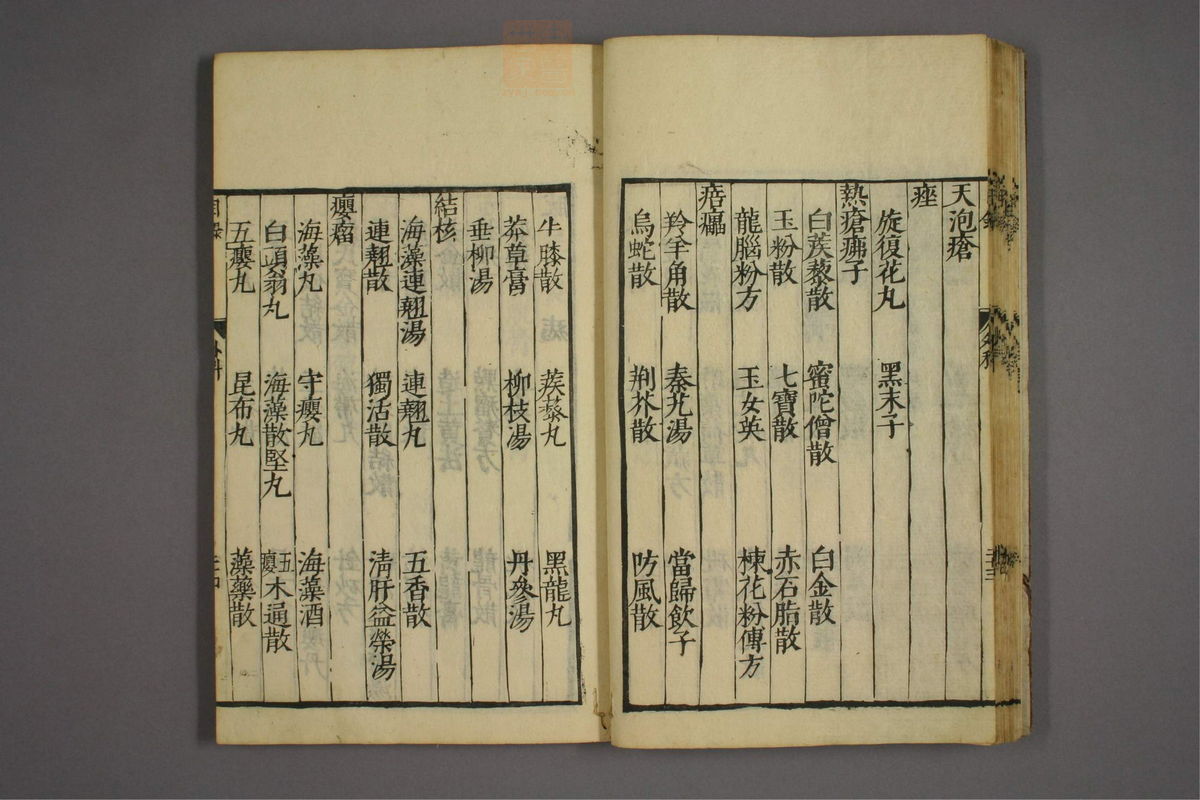 天泡瘡
痤
旋復花丸 黑末子
熱瘡疿子
白蒺藜散 蜜陀僧散 白金散
玉粉散 七寶散 赤石脂散
龍腦粉方 玉女英 楝花粉傳方
㾦癗
羚羊角散 秦艽湯 當歸飲子
烏蛇散 荆芥散 防風散
牛膝散 蒺藜丸 黑龍丸
莽草膏 柳枝湯 丹參湯
垂柳湯
結核
海藻連翹湯 連翹丸 五香散
連翹散 獨活散 清肝益榮湯
癭瘤
海藻丸 守癭丸 海藻酒
白頭翁丸 海藻散堅丸 五癭木通散
五癭丸 昆布丸 藻藥散
外科